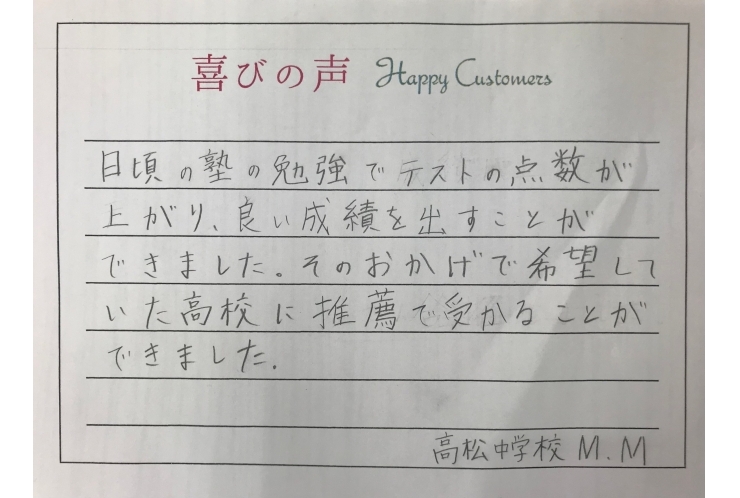 喜びの声 Happy Customers
日頃の塾の勉強でテストの点数が
上がり、良い成績を出すことが
できました。そのおかげで希望して
いた高校に推薦で受かることが
できました.
高松中学校 M.M